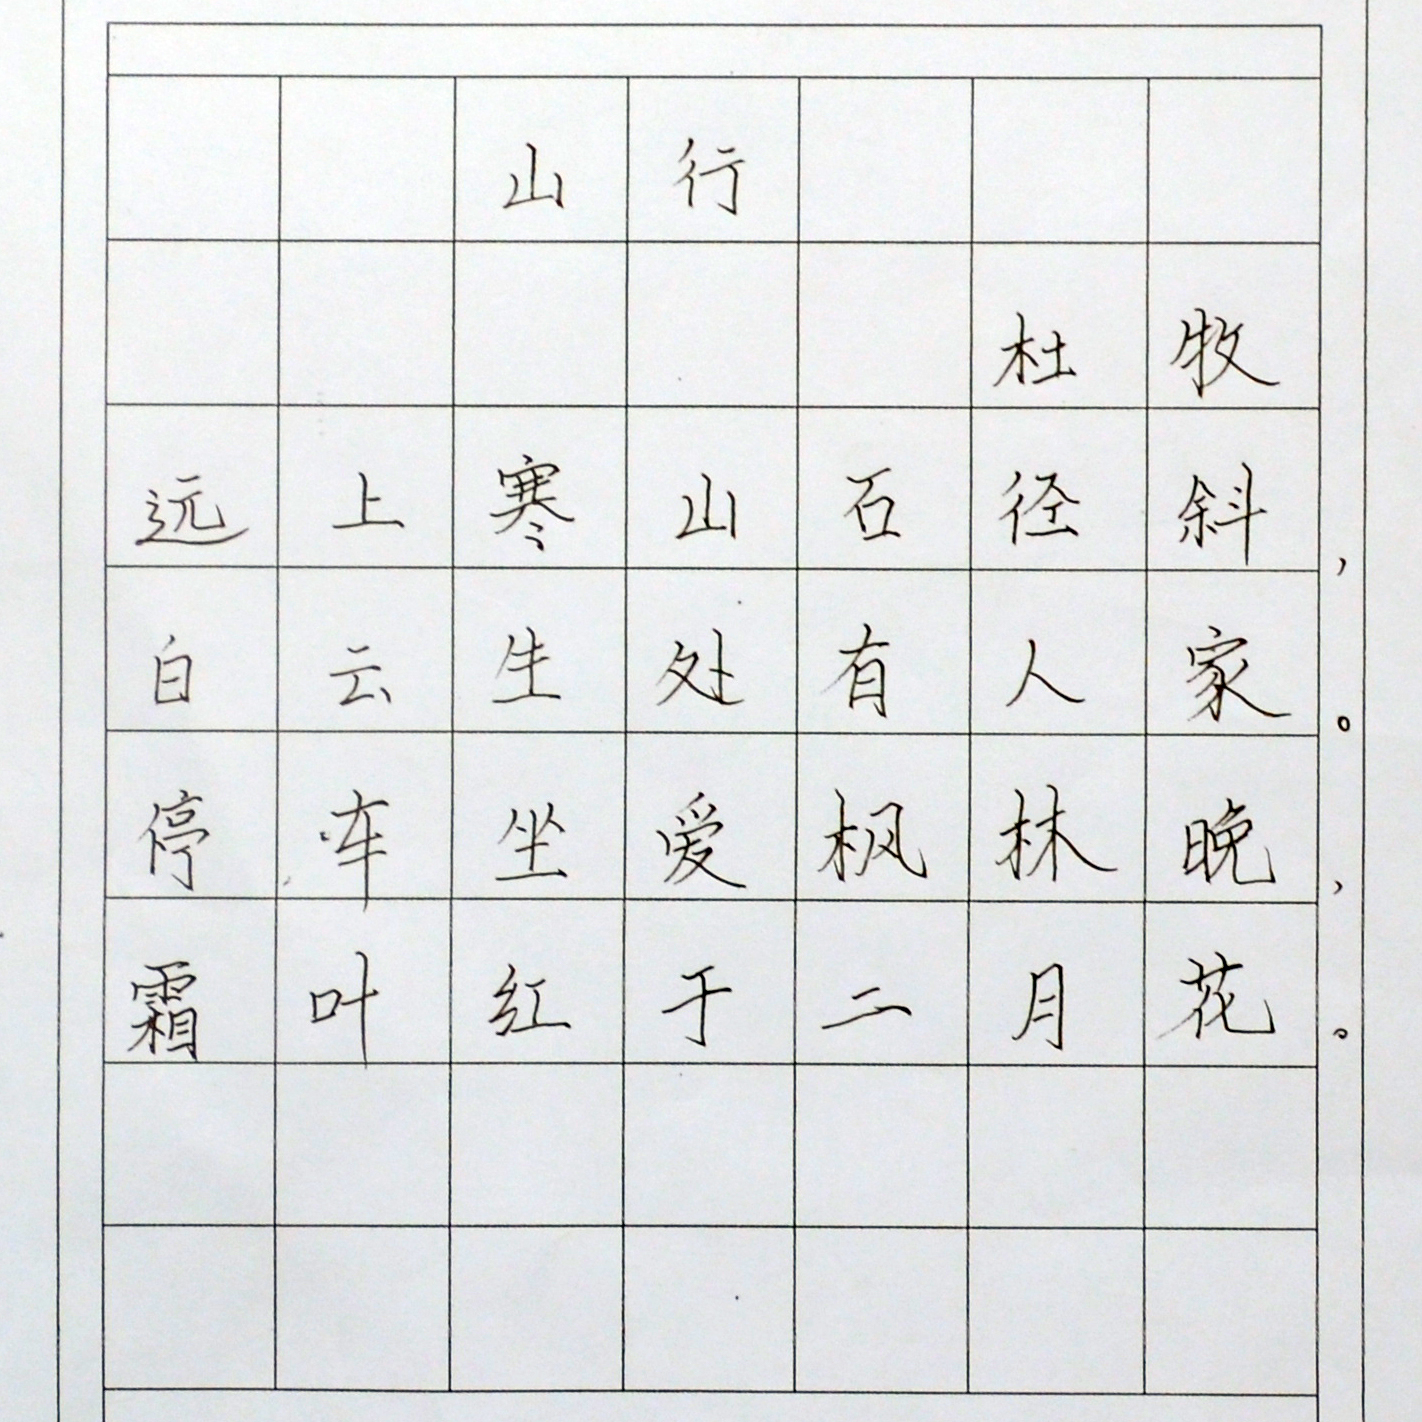 山行
杜牧
远上寒山石径斜，
白云生处有人家。
停车坐爱枫林晚，
霜叶红于二月花。